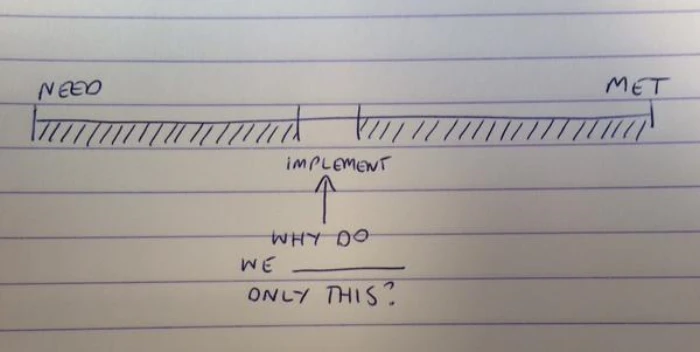 NEED MET
IMPLEMENT
WHY DO
WE ______
ONLY THIS?